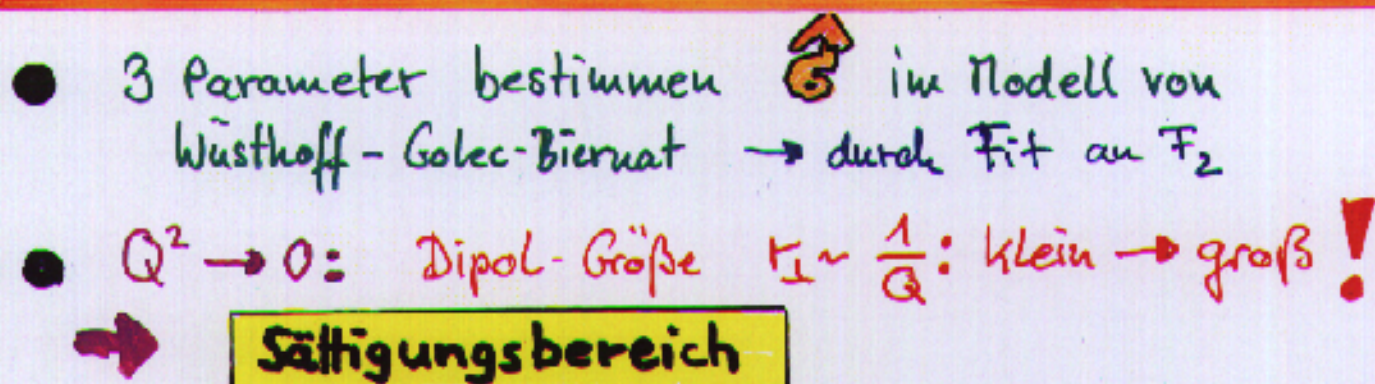 ● 3 Parameter bestimmen σ̂ im Modell von
Wüsthoff - Golec-Biernat → durch Fit an F₂
● Q² → 0: Dipol-Größe r⊥ ~ 1/Q: klein → groß!
➡ Sättigungsbereich